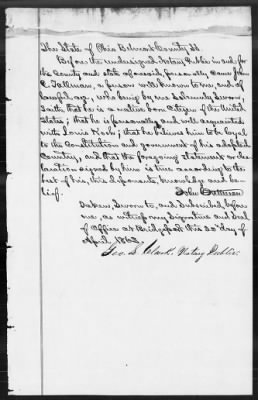 The State of Ohio Belmont County SS.
Before the undersigned Notary Public in and for
the County and State aforesaid, personally came John
C. Tallman, a person well known to me, and of
lawful age, who being by me Solemnly Sworn
saith that he is a native born Citizen of the United
States; that he is personally and well acquainted
with Louis ; that he believes him to be loyal
to the Constitution and government of his adopted
Country, and that the foregoing statement or dec-
laration signed by him is true according to the
best of his, this deponents, knowledge and be-
lief.
John C Tallman
Taken, Sworn to, and Subscribed before
me, as witness my Signature and Seal
of Office at Bridgeport this 20th day of
April, 1863.
Geo. S. Clark. Notary Public.